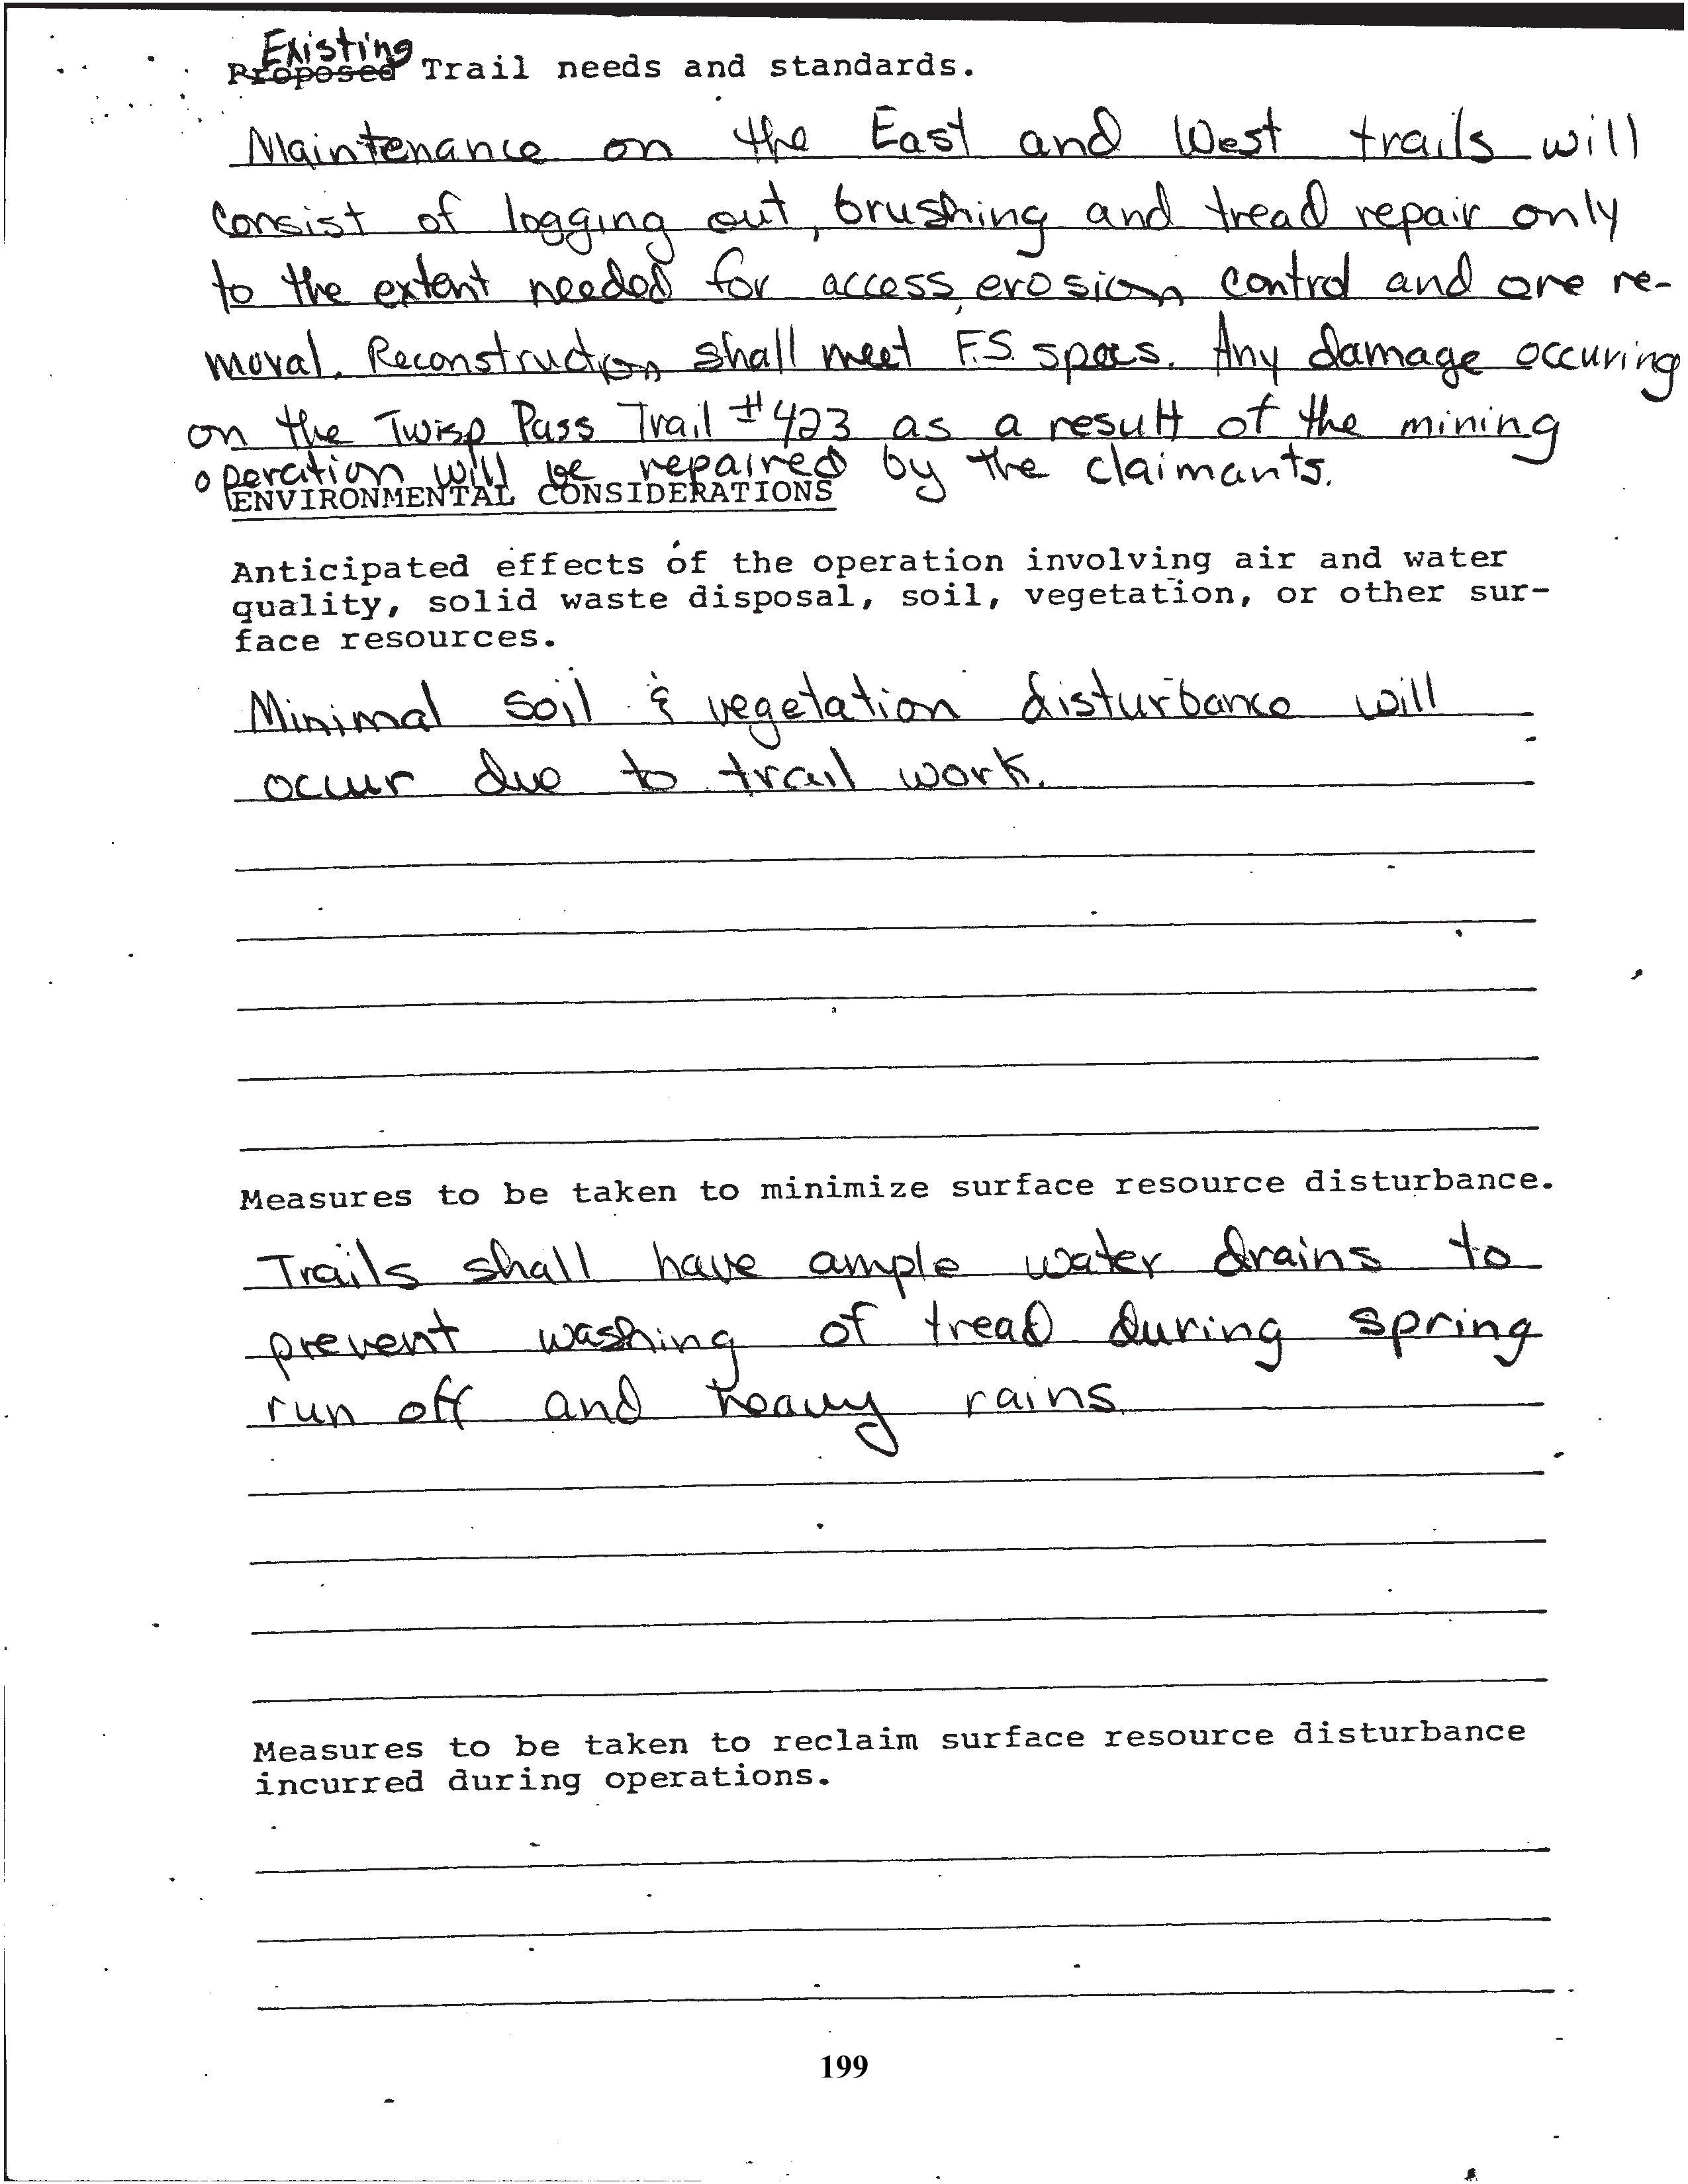 Existing
Proposed Trail needs and standards.
Maintenance on the East and West trails will
consist of logging out, brushing and tread repair only
to the extent needed for access, erosion control and ore re-
moval. Reconstruction shall meet F.S. specs. Any damage occuring
on the Twisp Pass Trail #423 as a result of the mining
operation will be repaired by the claimants.
ENVIRONMENTAL CONSIDERATIONS
Anticipated effects of the operation involving air and water
quality, solid waste disposal, soil, vegetation, or other sur-
face resources.
Minimal soil & vegetation disturbance will
occur due to trail work.
Measures to be taken to minimize surface resource disturbance.
Trails shall have ample water drains to
prevent washing of tread during spring
run off and heavy rains
Measures to be taken to reclaim surface resource disturbance
incurred during operations.
199